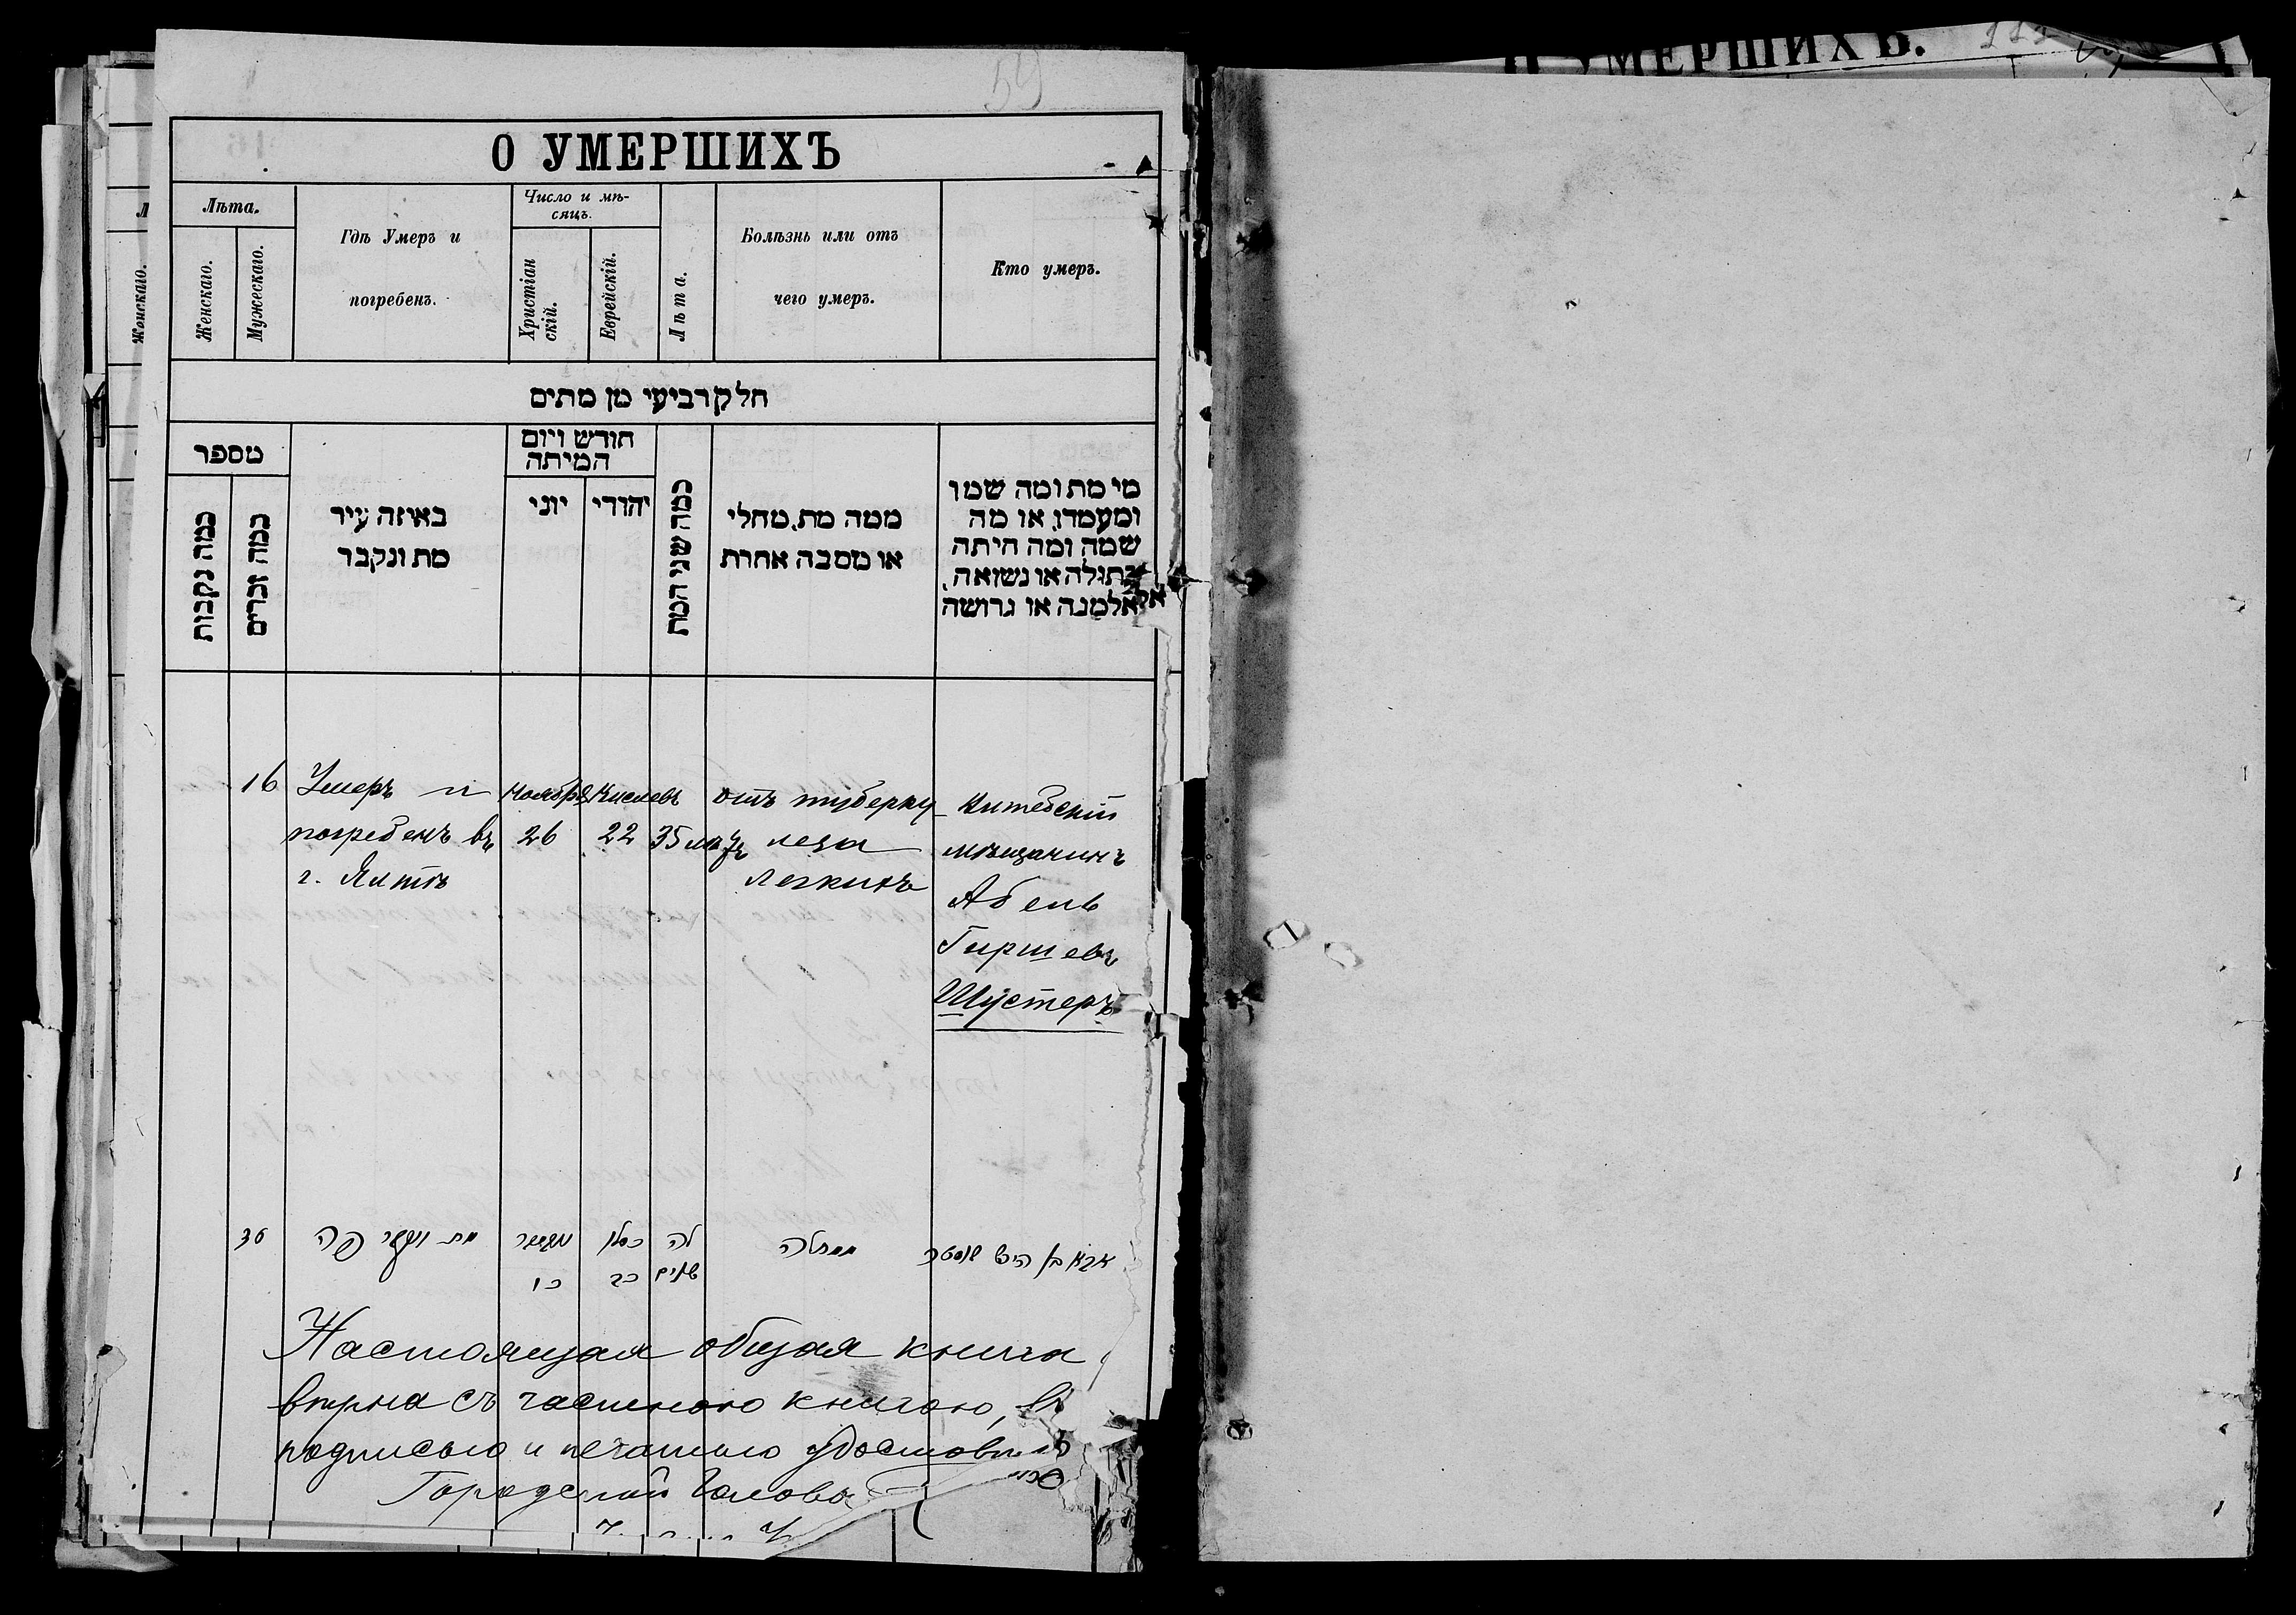 59
О УМЕРШИХЪ
Лѣта.
Женскаго.
Мужескаго.
Гдѣ Умеръ и
погребенъ.
Число и мѣ-
сяцъ.
Христіан
скій.
Еврейскій.
Лѣта.
Болѣзнь или отъ
чего умеръ.
Кто умеръ.
חלק רביעי מן מתים
מספר
כמה נקבות
כמה זכרים
באיזה עיר
מת ונקבר
חודש ויום
המיתה
יוני
יהודי
כמה שני המת
ממה מת, מחלי
או מסבה אחרת
מי מת ומה שמו
ומעמדו, או מה
שמה ומה היתה
בתולה או נשואה,
אלמנה או גרושה
16
Умеръ и
погребенъ въ
г. Ялтѣ
Ноября
26
Кислевъ
22
35 лѣтъ
отъ туберку
леза
легкихъ
Витебскій
мѣщанинъ
Абель
Гиршевъ
Шустеръ
מת ונקבר פה
כו
כסלו
כב
לה
שנים
ממחלה
הירש שוסטר
Настоящая общая книга
вѣрна съ частною книгою,
подписью и печатью
Городской Голова
УМЕРШИХЪ.
Женскаго.